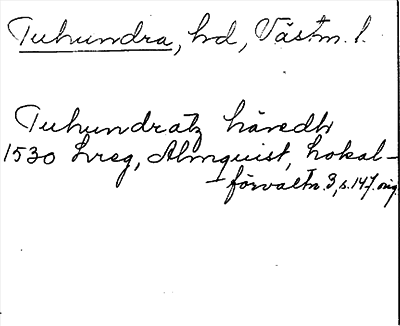 Tuhundra, hd, Västm. l.
Tuhundratz häredh
1530 Lrsg, Almquist, Lokal-
förvaltn. 3, s. 147. orig.